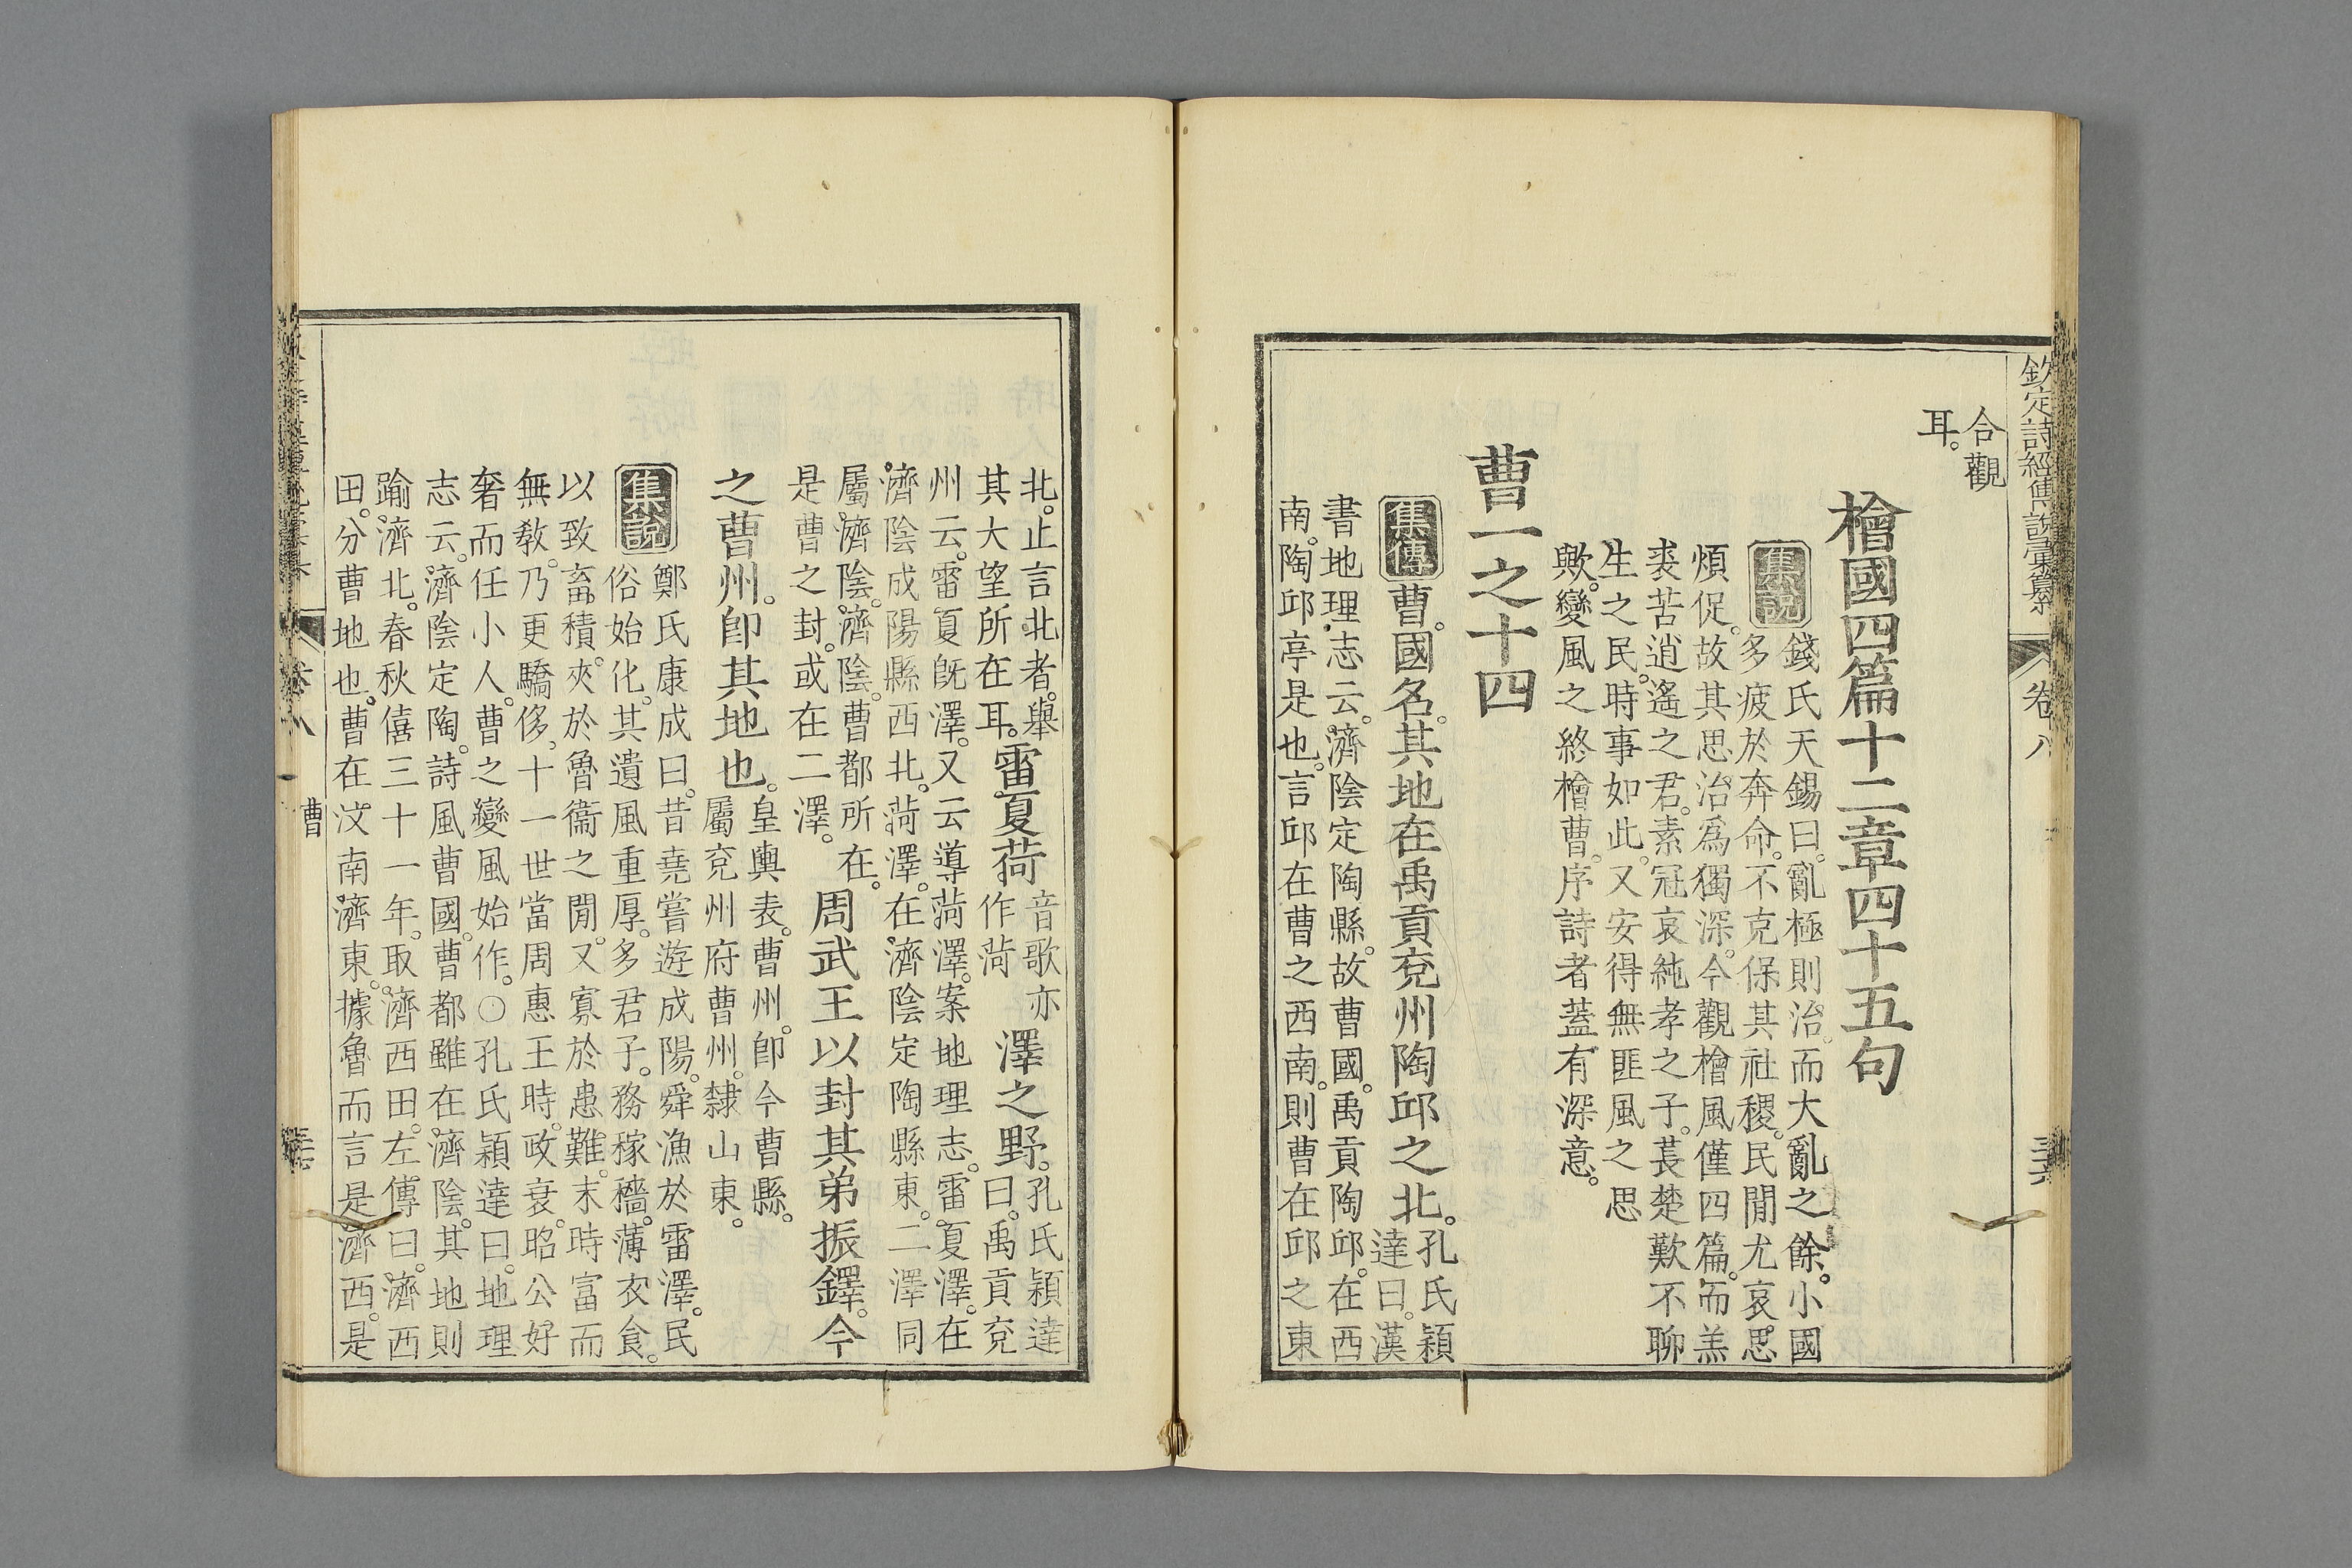 欽定詩經傳說彙纂 卷八
合觀
耳。
檜國四篇十二章四十五句
集說 錢氏天錫曰。亂極則治。而大亂之餘。小國
多疲於奔命。不克保其社稷。民閒尤哀。思
煩促。故其思治爲獨深。今觀檜風僅四篇。而羔
裘苦逍遙之君。素冠哀純孝之子。萇楚歎不聊
生之民。時事如此。又安得無匪風之思
歟。變風之終檜曹。序詩者蓋有深意。
曹一之十四
集傳 曹。國名。其地在禹貢兗州陶邱之北。孔氏穎
達曰。漢
書地理志云。濟陰定陶縣。故曹國。禹貢陶邱。在西
南。陶邱亭是也。言邱在曹之西南。則曹在邱之東
北。止言北者。舉
其大望所在耳。雷夏菏音歌亦
作荷澤之野。孔氏穎達
曰。禹貢兗
州云。雷夏旣澤。又云導菏澤。案地理志。雷夏澤。在
濟陰成陽縣西北。菏澤。在濟陰定陶縣東。二澤同
屬濟陰。濟陰。曹都所在。
是曹之封。或在二澤。周武王以封其弟振鐸。今
之曹州。卽其地也。皇輿表。曹州。卽今曹縣。
屬兗州府曹州。隸山東。
集說 鄭氏康成曰。昔堯嘗遊成陽。舜漁於雷澤。民
俗始化。其遺風重厚。多君子。務稼穡。薄衣食。
以致畜積。夾於魯衞之閒。又寡於患難。末時富而
無敎。乃更驕侈。十一世當周惠王時。政衰。昭公好
奢而任小人。曹之變風始作。○孔氏穎達曰。地理
志云。濟陰定陶。詩風曹國。曹都雖在濟陰。其地則
踰濟北。春秋僖三十一年。取濟西田。左傳曰。濟西
田。分曹地也。曹在汶南濟東。據魯而言。是濟西。是
卷八 曹